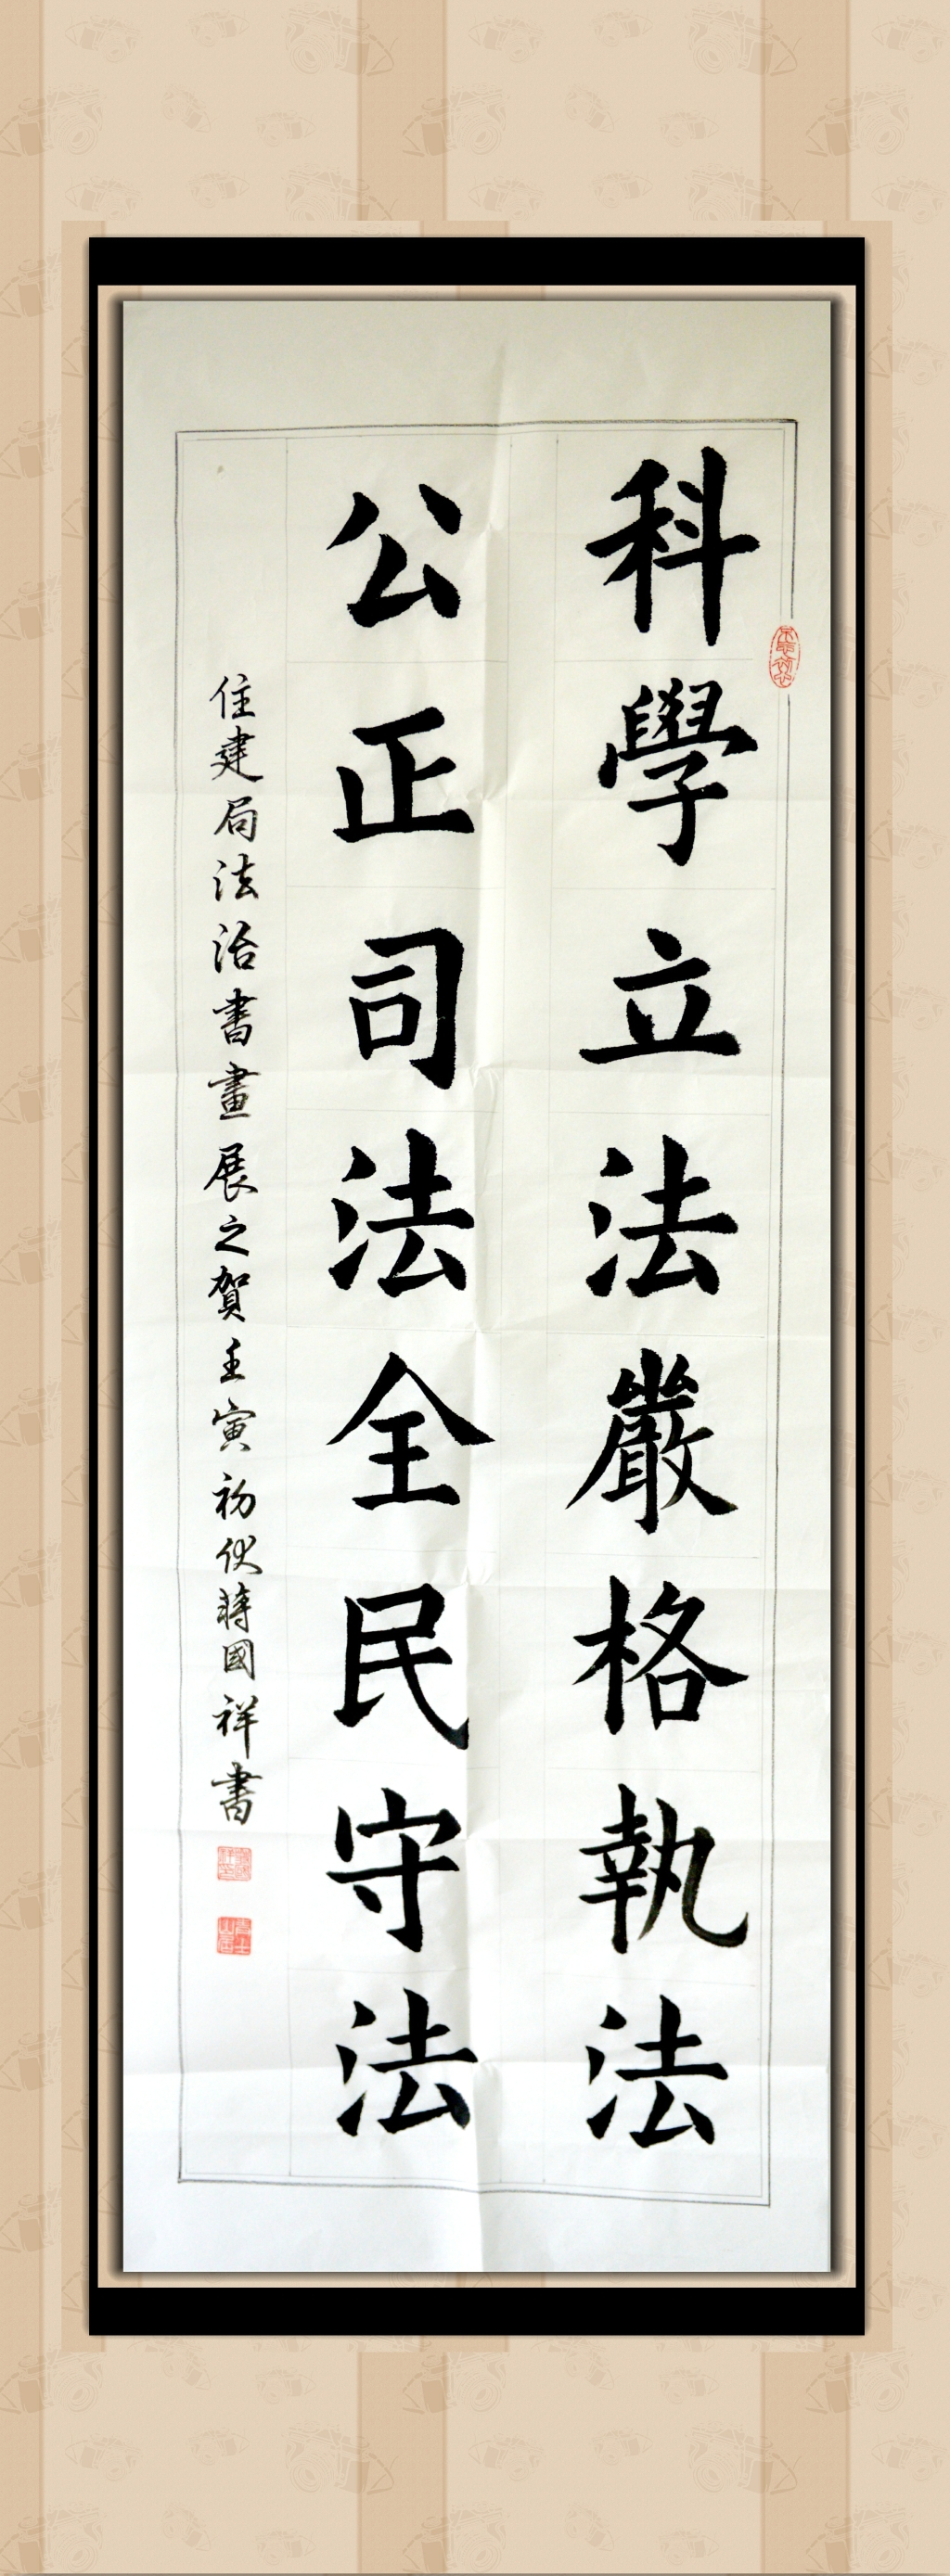 科學立法嚴格執法
公正司法全民守法
住建局法治書畫展之賀壬寅初伏蔣國祥書